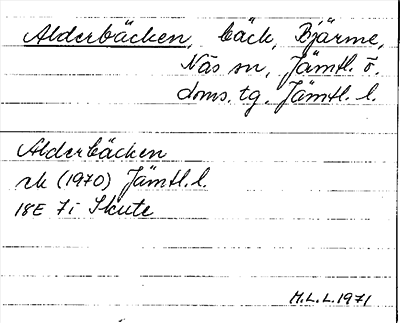 Alderbäcken, bäck, Bjärme,
Näs sn, Jämtl. ö.
doms. tg. Jämtl. l.
Alderbäcken
rk (1970) Jämtl. l.
18E 7i Skute
M.L.L. 1971